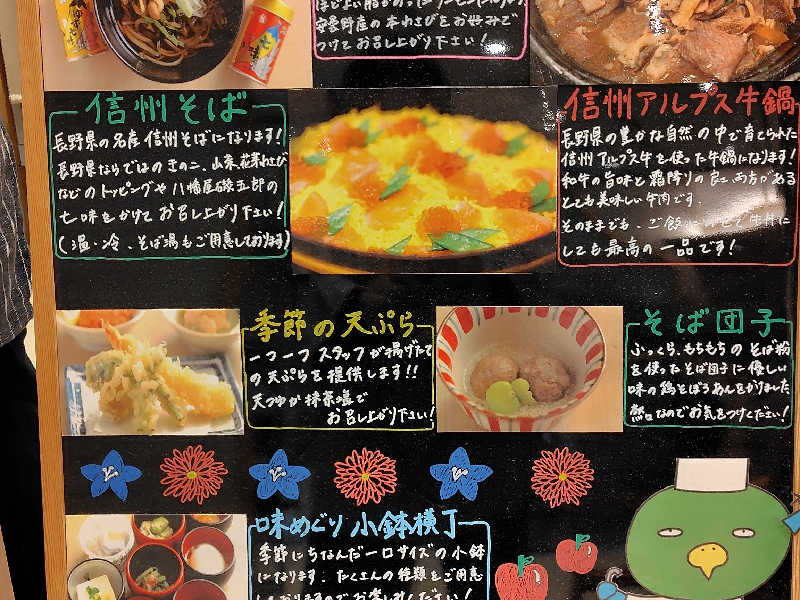 安曇野産の本わさびをお好みで
つけてお召し上がり下さい!
信州そば
長野県の名産信州そばになります!
長野県ならではのきのこ、山菜、花芽わさび
などのトッピングや八幡屋礒五郎の
七味をかけてお召し上がり下さい!
(温・冷、そば湯もご用意しております)
信州アルプス牛鍋
長野県の豊かな自然の中で育てられた
信州アルプス牛を使った牛鍋になります!
和牛の旨味と霜降りの良さ両方がある
とても美味しい牛肉です。
そのままでも、ご飯に のせて牛丼に
しても最高の一品です!
季節の天ぷら
一つ一つスタッフが揚げたて
の天ぷらを提供します!!
天つゆか抹茶塩で
お召し上がり下さい!
そば団子
ふっくら、もちもちのそば粉
を使ったそば団子に優しい
味の鶏そぼろあんをかけました
熱々なのでお気をつけください!
味めぐり小鉢横丁
季節にちなんだ一口サイズの小鉢
になります。たくさんの種類をご用意
しておりますのでお楽しみください!